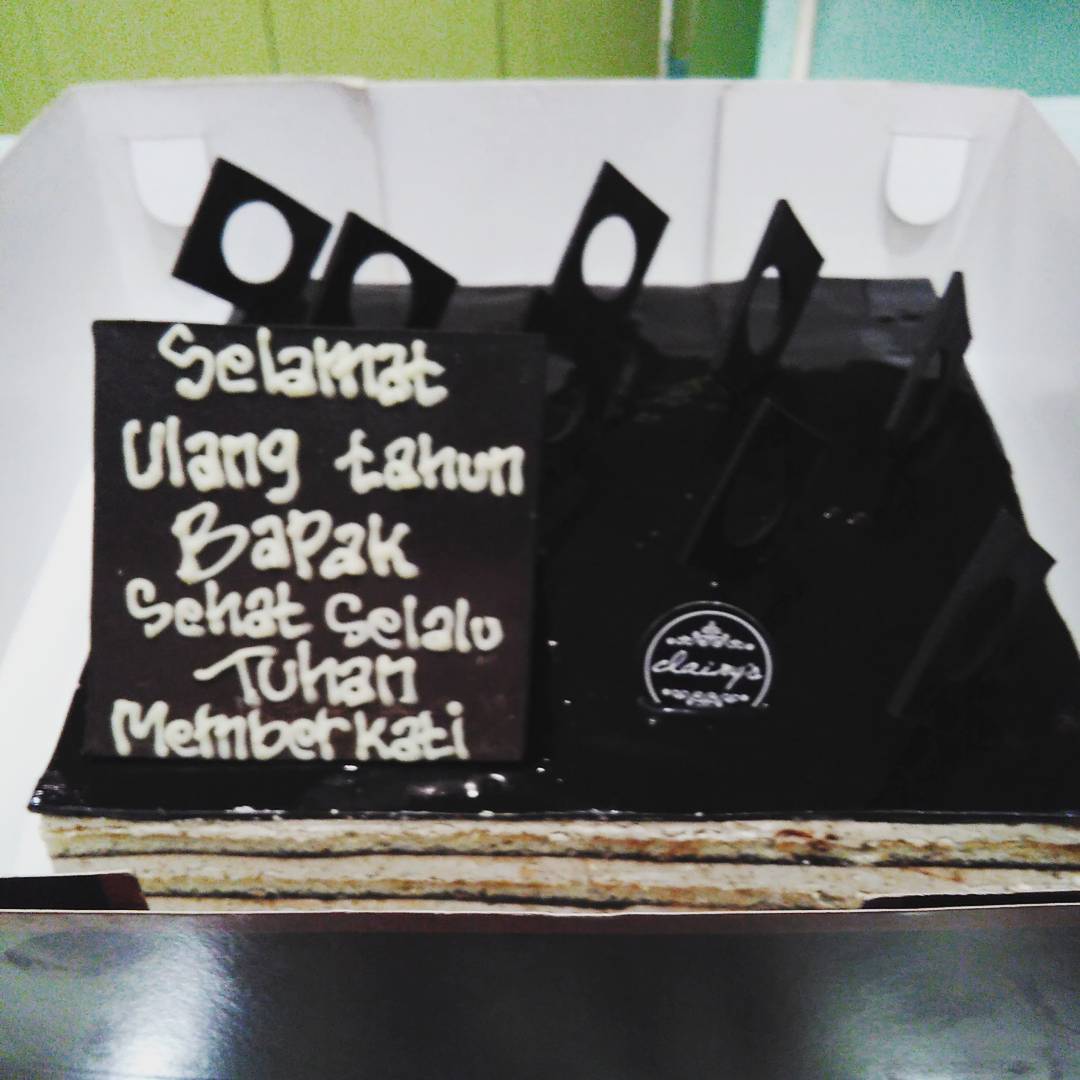 Selamat
Ulang tahun
Bapak
Sehat Selalu
Tuhan
Memberkati
clairy's